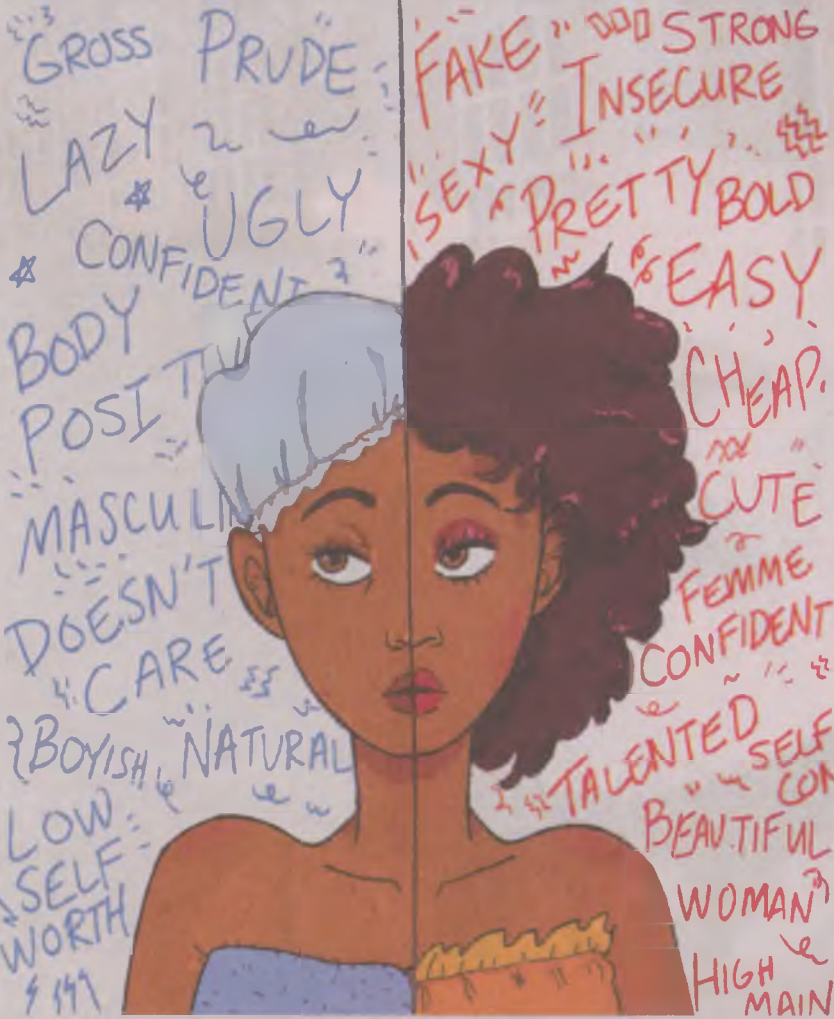 GROSS PRUDE
LAZY
UGLY
CONFIDENT
BODY
POSIT
MASCULIN
DOESN'T
CARE
BOYISH, NATURAL
LOW
SELF
WORTH
FAKE STRONG
INSECURE
SEXY
PRETTY BOLD
EASY
CHEAP.
CUTE
FEMME
CONFIDENT
TALENTED
SELF
CON
BEAUTIFUL
WOMAN
HIGH
MAIN